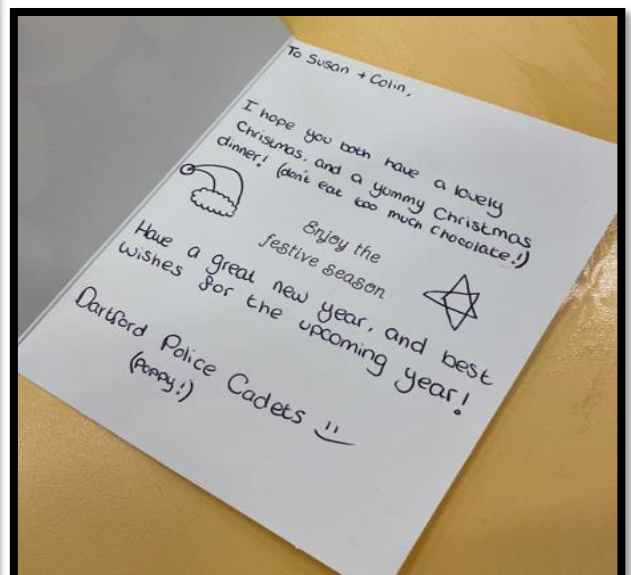 To Susan + Colin,
I hope you both have a lovely
Christmas, and a yummy Christmas
dinner! (don't eat too much chocolate!)
Enjoy the
festive season
Have a great new year, and best
wishes for the upcoming year!
Dartford Police Cadets
(Poppy!)